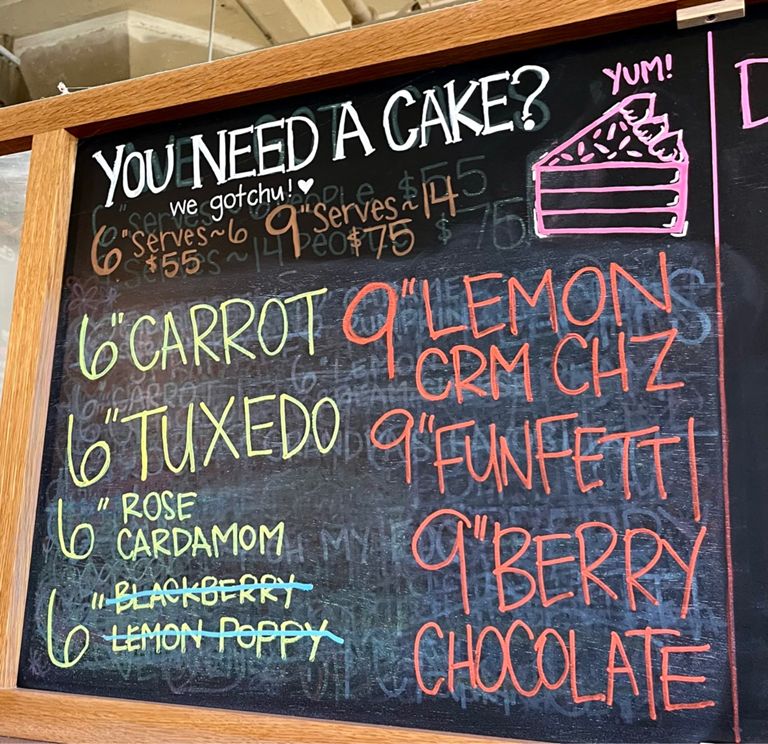 YOU NEED A CAKE?
YUM!
we gotchu! ♥
6" serves ~6 9" serves ~14
$55 $75
6" CARROT
6" TUXEDO
6" ROSE
CARDAMOM
6" BLACKBERRY
LEMON POPPY
9" LEMON
CRM CHZ
9" FUNFETTI
9" BERRY
CHOCOLATE